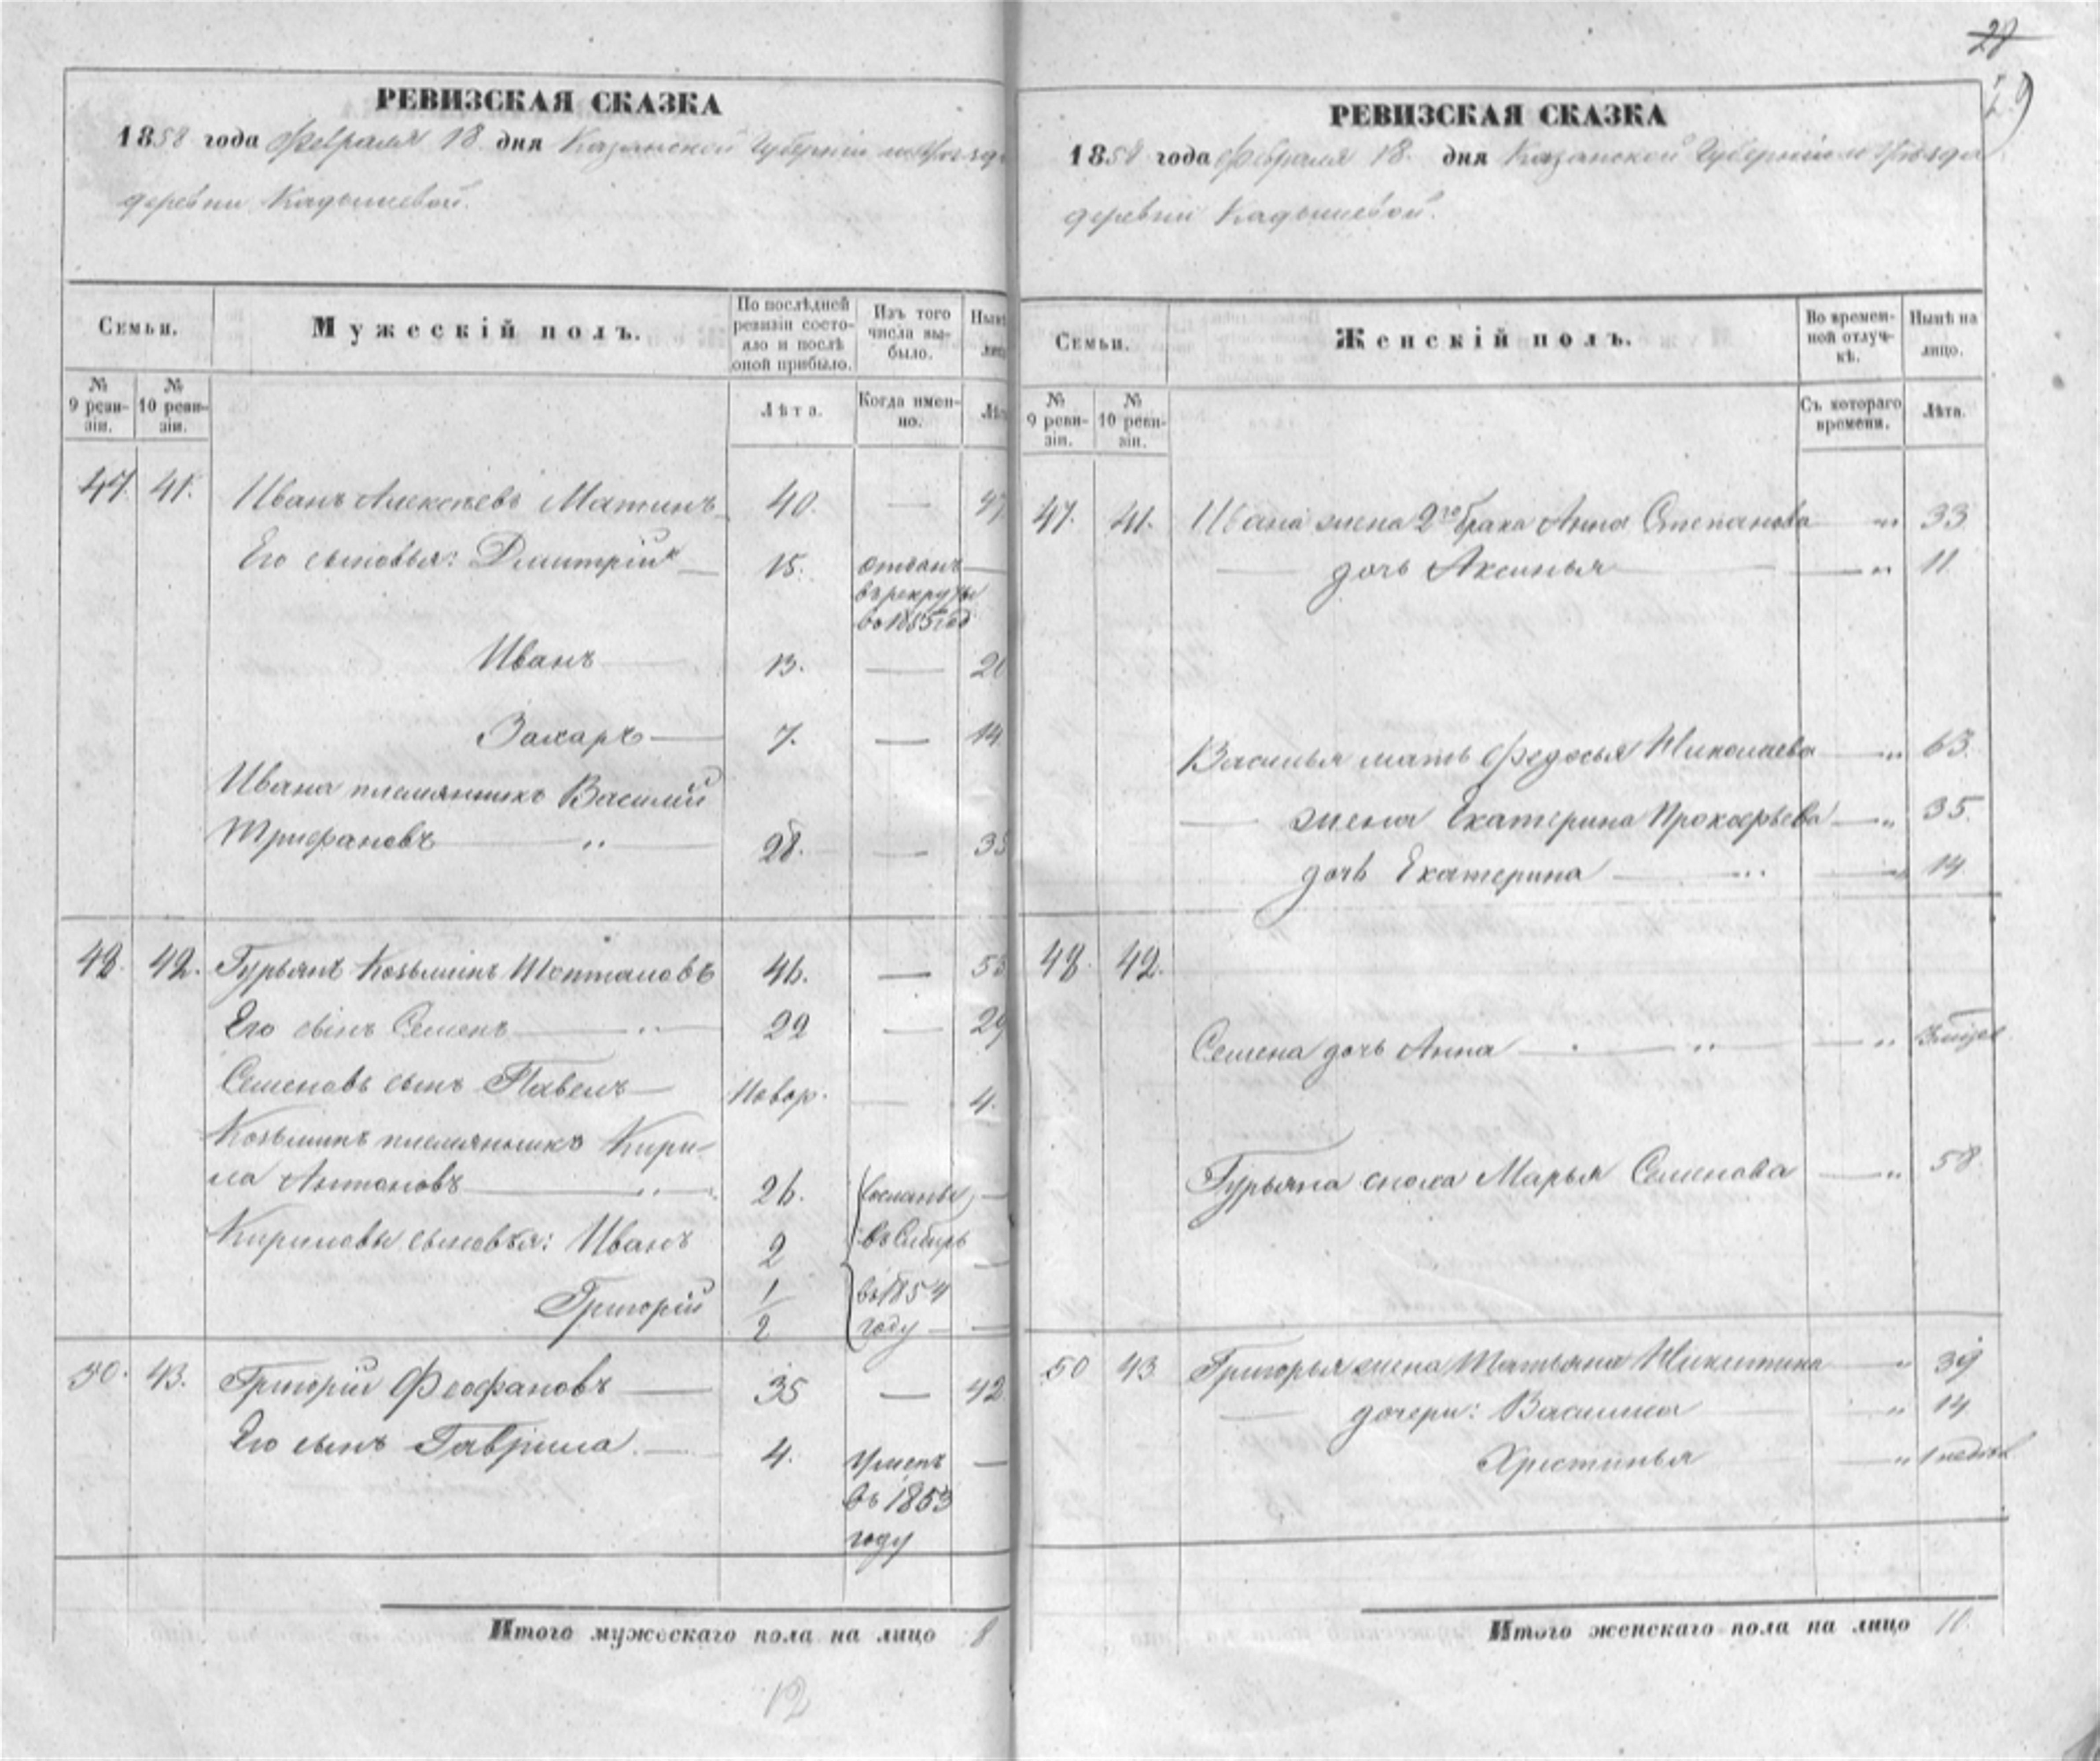 28
29
РЕВИЗСКАЯ СКАЗКА
1858 года Февраля 18 дня Казанской Губерніи и Уѣзда
деревни Кадышевой.
Семьи.
Мужескій полъ.
По послѣдней ревизіи состояло и послѣ оной прибыло.
Изъ того числа выбыло.
№ 9 ревизіи.
№ 10 ревизіи.
Лѣта.
Когда именно.
47. 41. Иванъ Алексѣевъ Матинъ 40. —
Его сыновья: Дмитрій 15. отданъ
въ рекруты
во 1855 год
Иванъ 13. —
Захаръ 7. — 14
Ивана племянникъ Василій
Трифановъ „ 28. —
48. 42. Гурьянъ Козьминъ 46. — 53
Его сынъ Семенъ „ 22 — 29
Семеновъ сынъ Павелъ Новор. — 4.
Козьминъ племянникъ Кири-
ла Антоновъ „ 26. сосланы
Кириловы сыновья: Иванъ 2 въ Сибирь
Григорій 1/2 въ 1854
году
50. 43. Григорій Феофановъ 35 — 42
Его сынъ Гаврила. 4. Умеръ
въ 1853
году
Итого мужескаго пола на лицо 8
12
РЕВИЗСКАЯ СКАЗКА
1858 года Февраля 18. дня Казанской Губерніи и Уѣзда
деревни Кадышевой.
Семьи.
Женскій полъ.
Во временной отлучкѣ.
Нынѣ на лицо.
№ 9 ревизіи.
№ 10 ревизіи.
Съ котораго времени.
Лѣта.
47. 41. Ивана жена 2го брака Анна Степанова „ 33
— дочь Аксинья — „ 11
Василья мать Федосья Николаева „ 63.
— жена Екатерина Прокофьева „ 35.
дочь Екатерина — 14
48. 42.
Семена дочь Анна „
Гурьяна сноха Марья Семенова „ 58
50 43 Григорья жена Татьяна Никитина „ 39
— дочери: Василиса „ 14
Христинья „ 1 недѣл
Итого женскаго пола на лицо 10.